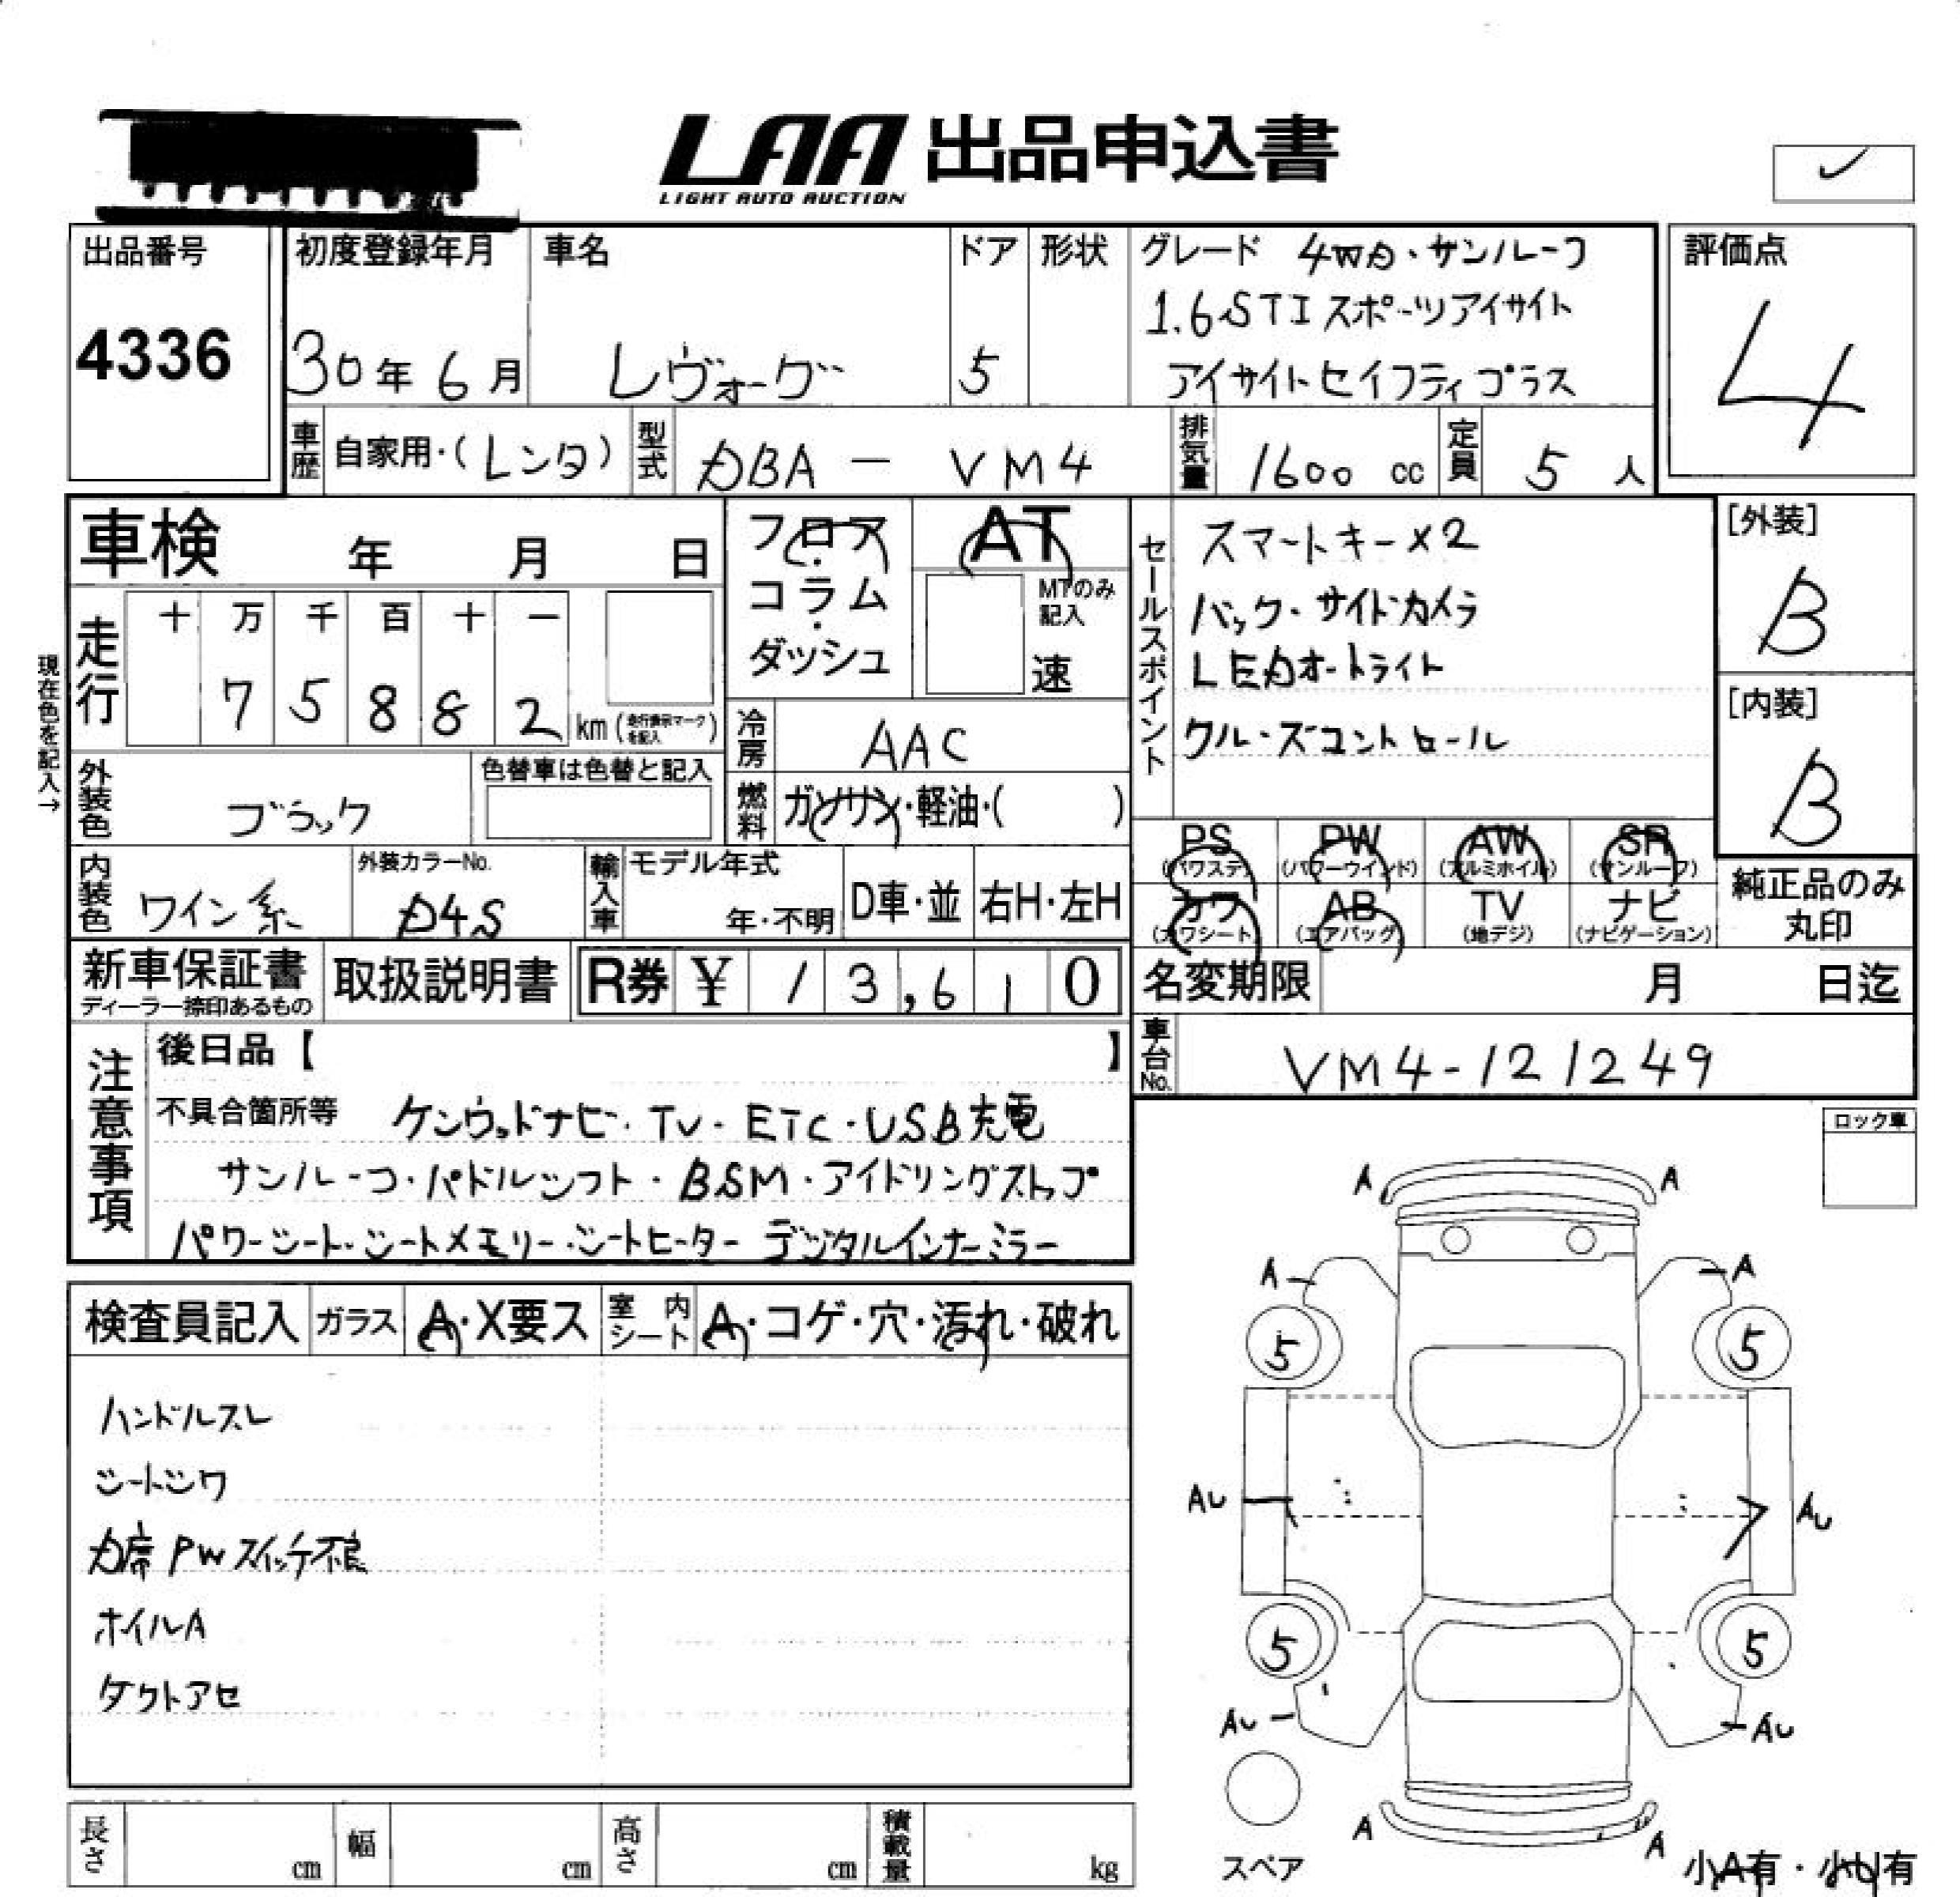 LAA 出品申込書
LIGHT AUTO AUCTION
出品番号
4336
初度登録年月
30年6月
車名
レヴォーグ
ドア
5
形状
グレード 4WD・サンルーフ
1.6STIスポーツアイサイト
アイサイトセイフティプラス
評価点
4
車歴 自家用・(レンタ)
型式 DBA - VM4
排気量 1600 cc
定員 5 人
車検 年 月 日
フロア
コラム
ダッシュ
AT
MTのみ
記入
速
セールスポイント
スマートキー×2
バック・サイドカメラ
LEDオートライト
クルーズコントロール
[外装]
B
[内装]
B
現在色を記入→
走行
十 万 千 百 十 一
7 5 8 8 2 km (走行表示マークを記入)
冷房 AAC
燃料 ガソリン・軽油・( )
外装色 ブラック
色替車は色替と記入
内装色 ワイン系
外装カラーNo.
D4S
輸入車
モデル年式
年・不明
D車・並
右H・左H
PS (パワステ)
PW (パワーウインド)
AW (アルミホイル)
SR (サンルーフ)
カワ (カワシート)
AB (エアバッグ)
TV (地デジ)
ナビ (ナビゲーション)
純正品のみ
丸印
新車保証書
ディーラー捺印あるもの
取扱説明書
R券 ¥ 13,610
名変期限 月 日迄
車台No. VM4-121249
注意事項
後日品【 】
不具合箇所等 ケンウッドナビ・TV・ETC・USB充電
サンルーフ・パドルシフト・BSM・アイドリングストップ
パワーシート・シートメモリー・シートヒーター デジタルインナーミラー
ロック車
検査員記入
ガラス A・X要ス
室内シート A・コゲ・穴・汚れ・破れ
ハンドルスレ
シートシワ
D席PWスイッチ不良
ホイルA
ダクトアセ
A A
A A
5 5
AU AU
5 5
AU AU
A A
スペア
小A有・小U有
長さ cm
幅 cm
高さ cm
積載量 kg